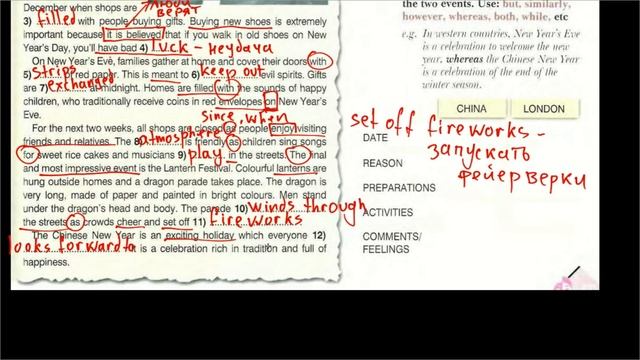 December when shops are люди верят
3) filled with people buying gifts. Buying new shoes is extremely
important because it is believed that if you walk in old shoes on New
Year's Day, you'll have bad 4) luck - неудача
On New Year's Eve, families gather at home and cover their doors with
5) strips red paper. This is meant to 6) keep out evil spirits. Gifts
are 7) exchanged at midnight. Homes are filled with the sounds of happy
children, who traditionally receive coins in red envelopes on New Year's
Eve.
since, when
For the next two weeks, all shops are closed as people enjoy visiting
friends and relatives. The 8) atmosphere is friendly as children sing songs
for sweet rice cakes and musicians 9) play in the streets. The final
and most impressive event is the Lantern Festival. Colourful lanterns are
hung outside homes and a dragon parade takes place. The dragon is
very long, made of paper and painted in bright colours. Men stand
under the dragon's head and body. The parade 10) winds through
the streets as crowds cheer and set off 11) fireworks
The Chinese New Year is an exciting holiday which everyone 12)
looks forward to it is a celebration rich in tradition and full of
happiness.
the two events. Use: but, similarly,
however, whereas, both, while, etc
e.g. In western countries, New Year's Eve
is a celebration to welcome the new
year, whereas the Chinese New Year
is a celebration of the end of the
winter season.
CHINA LONDON
set off fireworks -
запускать
фейерверки
DATE
REASON
PREPARATIONS
ACTIVITIES
COMMENTS/
FEELINGS